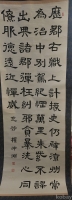 歷郡右職上計掾史仍辟涼州常
為治中別駕紀綱萬里朱紫不謬
出典諸郡彈枉糾邪貪暴洗心同
僚服德遠近憚威